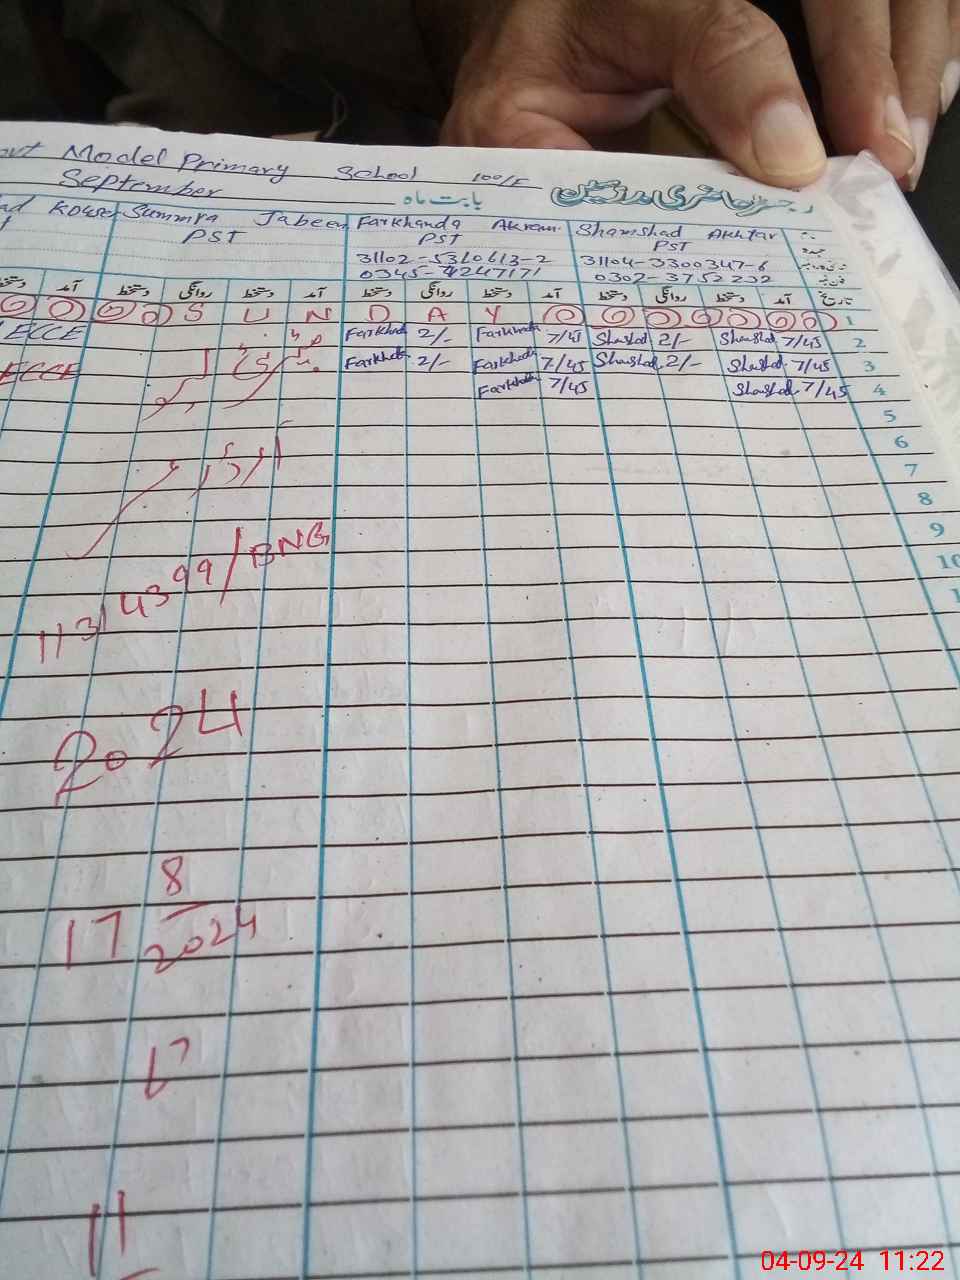 Model Primary School 100/F
September بابت ماہ رجسٹر حاضری مدرسین
Kouser Summra Jabeen Farkhanda Akram Shamshad Akhtar
PST PST PST
31102-5310613-2 31104-3300347-6
0345-4247171 0302-3752232
دستخط آمد دستخط روانگی دستخط آمد دستخط روانگی دستخط آمد دستخط روانگی دستخط آمد تاریخ
S U N D A Y 1
ECCE Farkhada 2/- Farkhada 7/45 Shamshad 2/- Shamshad 7/45 2
ECCE Farkhada 2/- Farkhada 7/45 Shamshad 2/- Shamshad 7/45 3
Farkhada 7/45 Shamshad 7/45 4
5
6
7
8
9
10
11314399/BNG
2024
17 8
2024
11
04-09-24 11:22